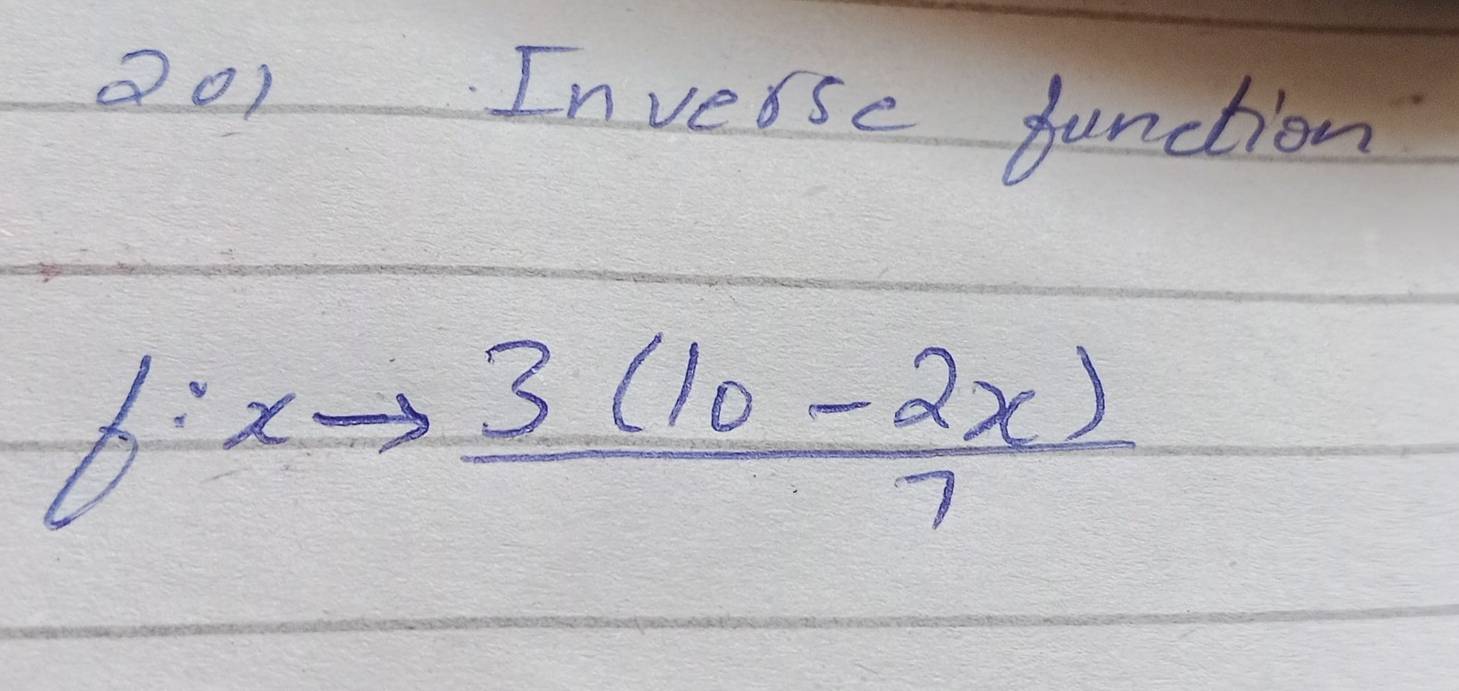 20) Inverse function
f : x → 3 (10 - 2x)
7